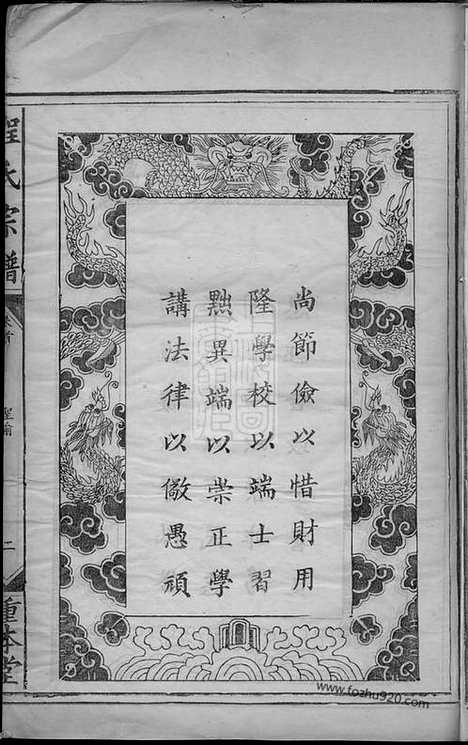 尚節儉以惜財用
隆學校以端士習
黜異端以崇正學
講法律以儆愚頑
氏宗譜
卷首
聖諭
二
重本堂
www.fozhu920.com